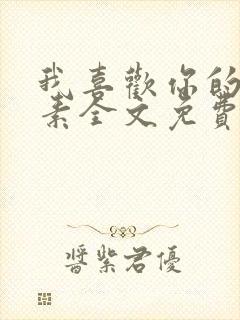 我喜歡你的
素全文免費
醬紫君優